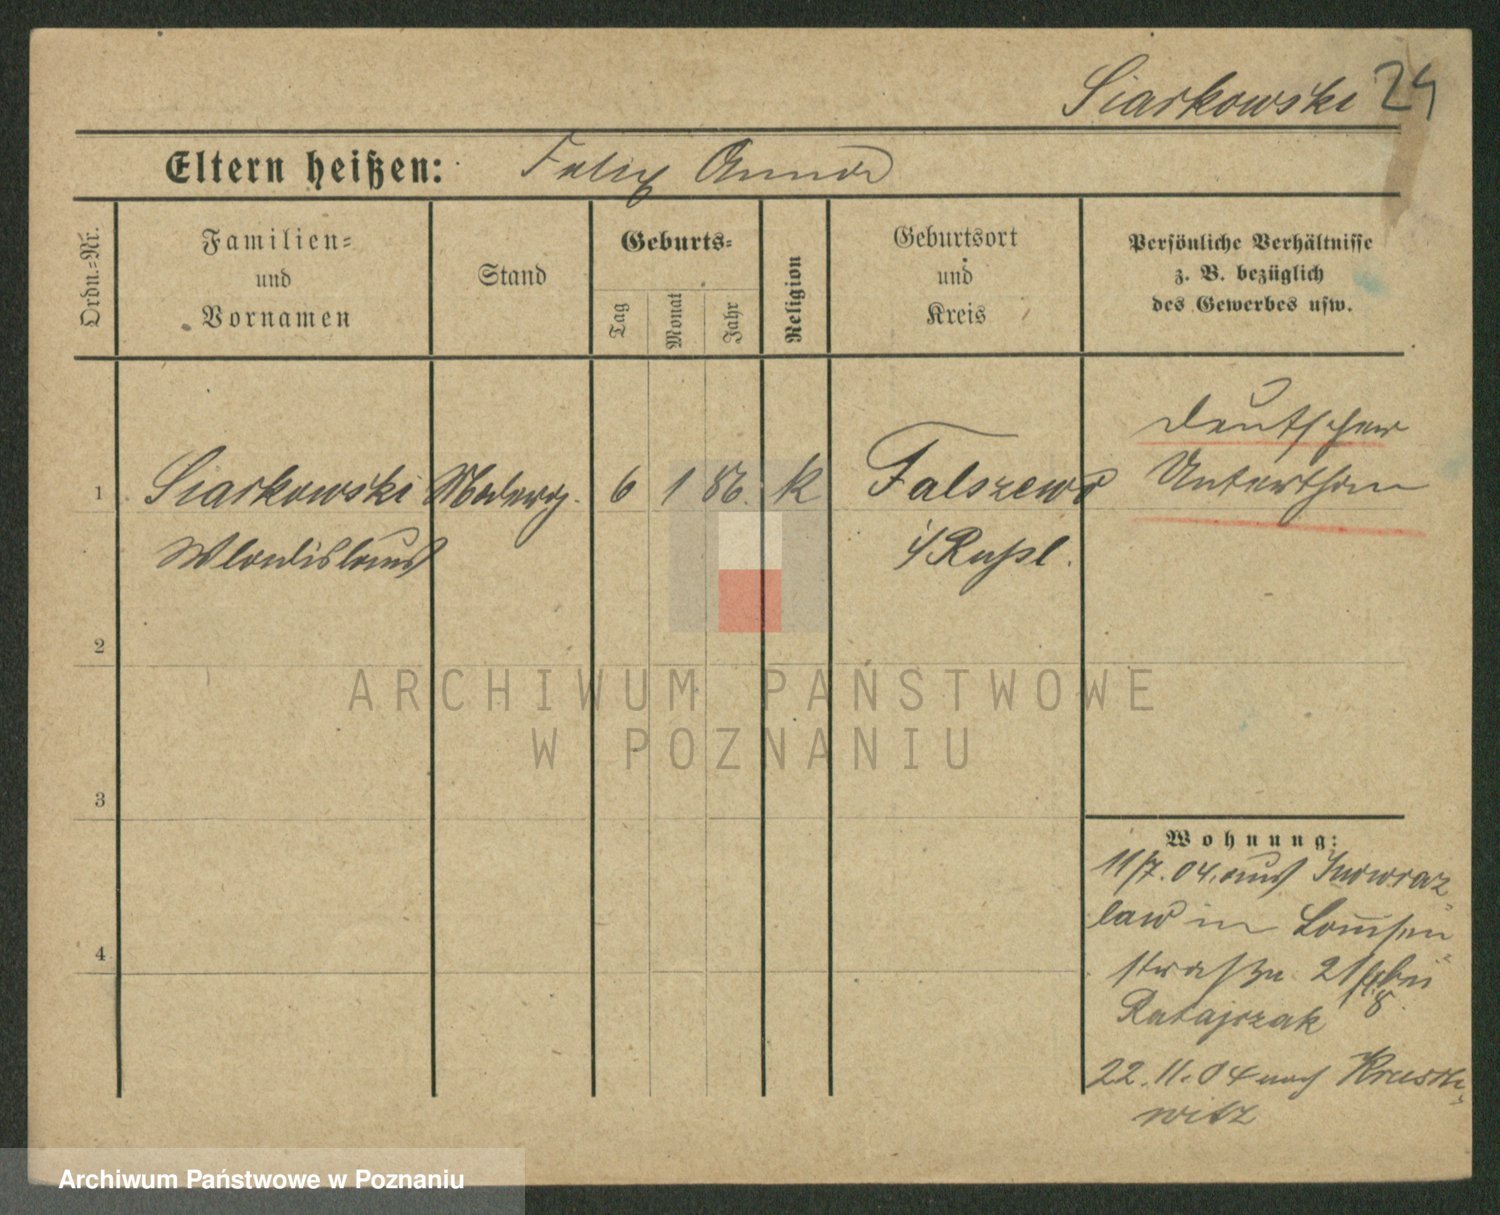 Siarkowski 24
Eltern heißen: Felix Anna
Ordn.-Nr.
Familien-
und
Vornamen
Stand
Geburts-
Tag
Monat
Jahr
Religion
Geburtsort
und
Kreis
Persönliche Verhältnisse
z. B. bezüglich
des Gewerbes usw.
deutscher
Unterthan
1 Siarkowski 6 1 86. K Falszewo
Wladislaus i/Rußl.
2
3
4
Wohnung:
11/7. 04. aus Inowraz-
law in
straße 21 bei
Ratajczak
22. 11. 04 nach Krusch-
witz
ARCHIWUM PAŃSTWOWE
W POZNANIU
Archiwum Państwowe w Poznaniu